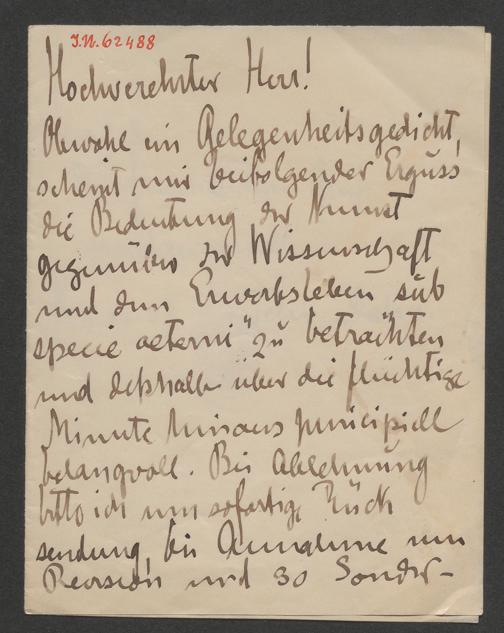 I.N. 62488
Hochverehrter Herr!
Obwohl ein Gelegenheitsgedicht,
scheint mir beifolgender Erguss
die Bedeutung der Kunst
gegenüber der Wissenschaft
und dem Erwerbsleben „sub
specie aeterni“ zu betrachten
und deshalb über die flüchtige
Minute hinaus principiell
belangvoll. Bei Ablehnung
bitte ich um sofortige Rück
sendung, bei Annahme um
Revision und 30 Sonder-